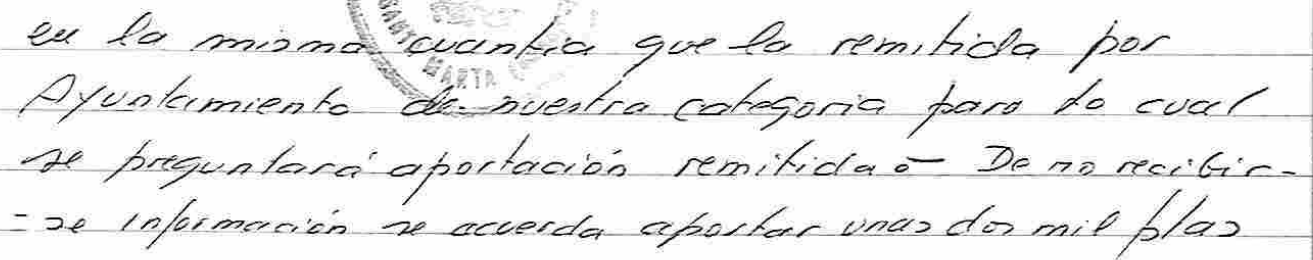 en la misma cuantia que la remitida por
Ayuntamiento de nuestra categoria para lo cual
se preguntará aportación remitida = De no recibir-
=se información se acuerda aportar unas dos mil ptas
MARTA